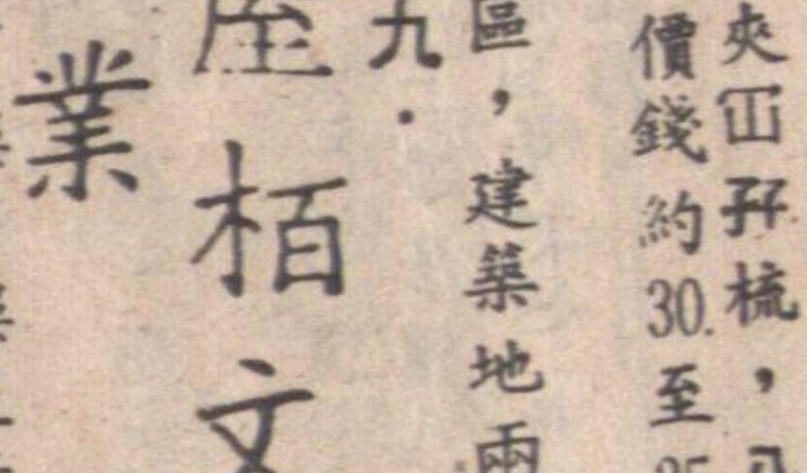 夾冚孖梳，
價錢約30.至
區，建築地兩
九．
栢文
業